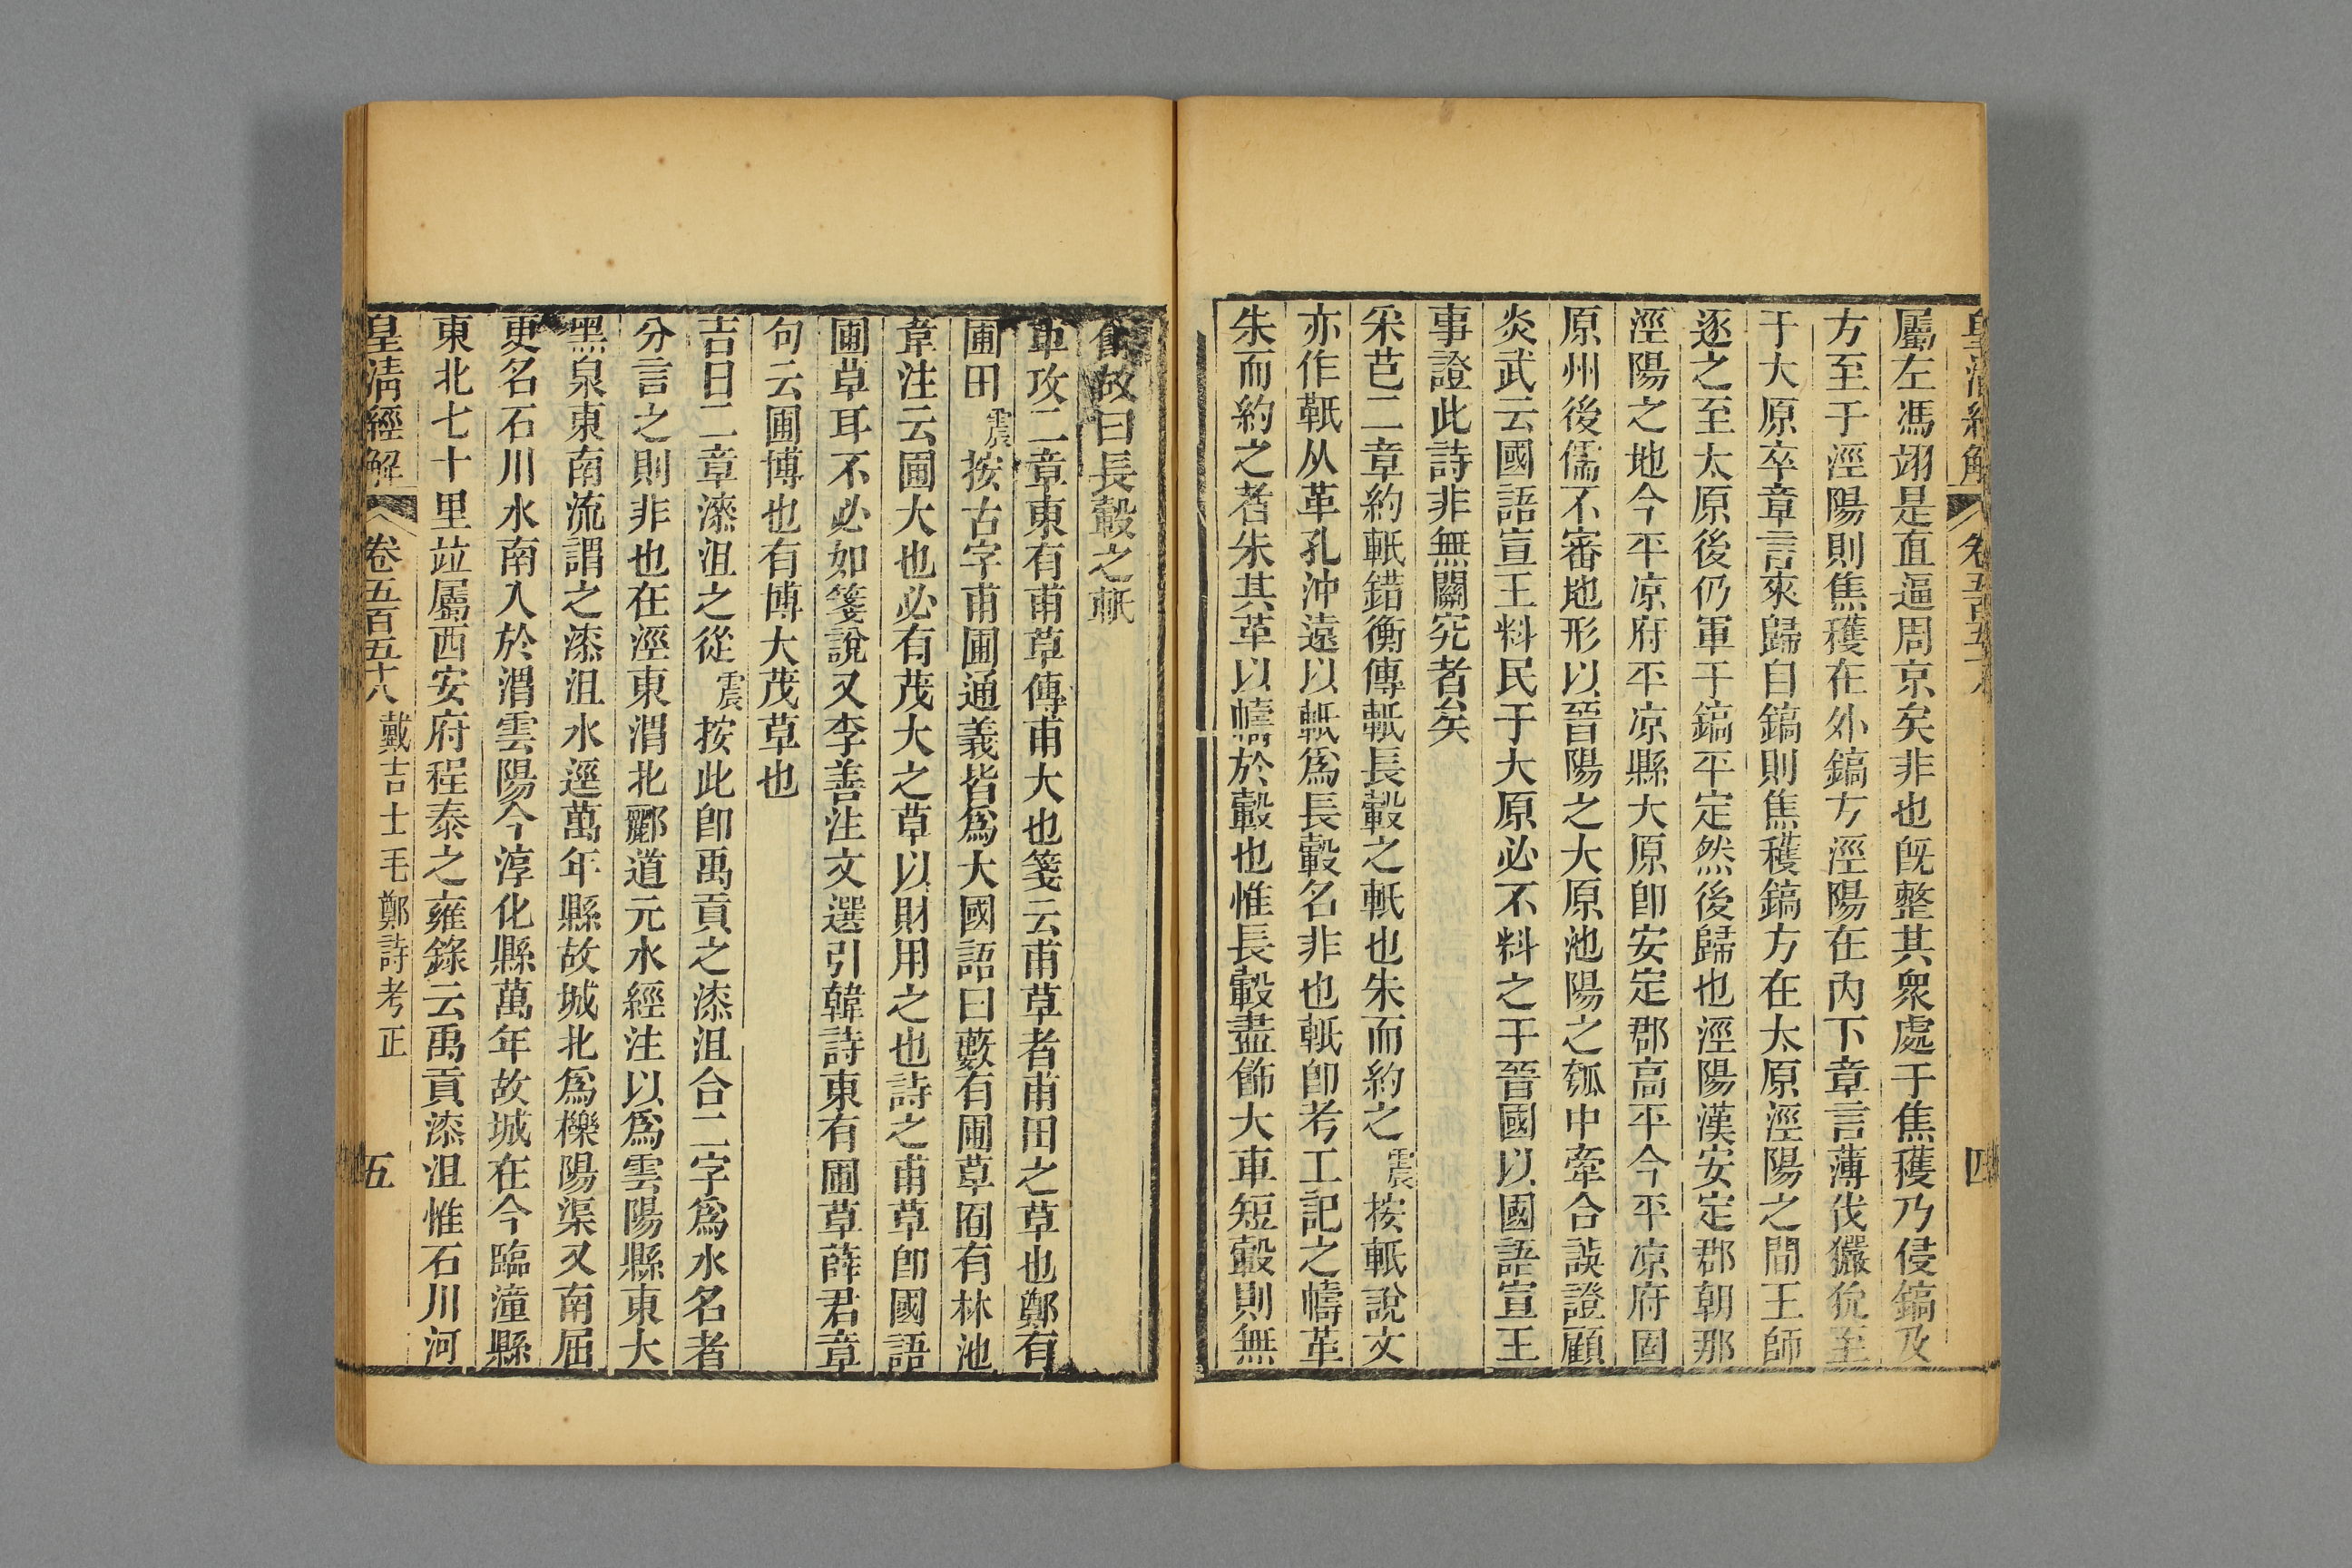 皇清經解 卷五百五十八 四
屬左馮翊是直逼周京矣非也旣整其衆處于焦穫乃侵鎬及
方至于涇陽則焦穫在外鎬方涇陽在內下章言薄伐玁狁至
于大原卒章言來歸自鎬則焦穫鎬方在太原涇陽之間王師
逐之至太原後仍軍于鎬平定然後歸也涇陽漢安定郡朝那
涇陽之地今平凉府平凉縣大原卽安定郡高平今平凉府固
原州後儒不審地形以晉陽之大原池陽之瓠中牽合誤證顧
炎武云國語宣王料民于大原必不料之于晉國以國語宣王
事證此詩非無關究者矣
采芑二章約軧錯衡傳軧長轂之軧也朱而約之震按軧說文
亦作䡋从革孔沖遠以軧爲長轂名非也軧卽考工記之幬革
朱而約之者朱其革以幬於轂也惟長轂盡飾大車短轂則無
飾故曰長轂之軧
車攻二章東有甫草傳甫大也箋云甫草者甫田之草也鄭有
圃田震按古字甫圃通義皆爲大國語曰藪有圃草囿有林池
韋注云圃大也必有茂大之草以財用之也詩之甫草卽國語
圃草耳不必如箋說又李善注文選引韓詩東有圃草薛君章
句云圃博也有博大茂草也
吉日二章漆沮之從震按此卽禹貢之漆沮合二字爲水名者
分言之則非也在涇東渭北酈道元水經注以爲雲陽縣東大
黑泉東南流謂之漆沮水逕萬年縣故城北爲櫟陽渠又南屈
更名石川水南入於渭雲陽今淳化縣萬年故城在今臨潼縣
東北七十里竝屬西安府程泰之雍錄云禹貢漆沮惟石川河
皇清經解 卷五百五十八 戴吉士毛鄭詩考正 五